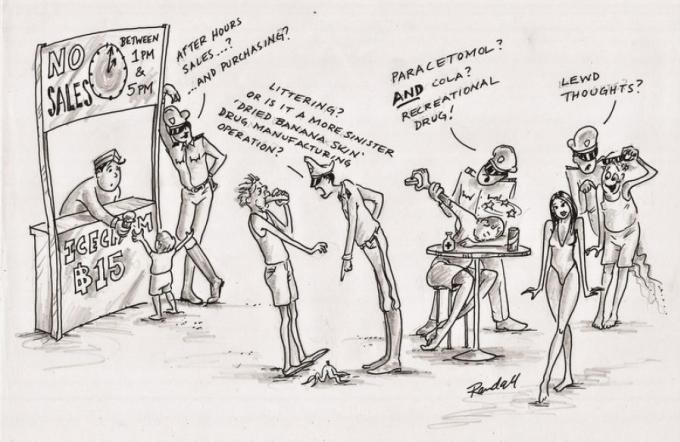 NO
SALES
BETWEEN
1PM
&
5PM
ICECREAM
฿15
AFTER HOURS
SALES...?
...AND PURCHASING?
LITTERING?
OR IS IT A MORE SINISTER
'DRIED BANANA SKIN'
DRUG MANUFACTURING
OPERATION?
PARACETOMOL?
AND COLA?
RECREATIONAL
DRUG!
LEWD
THOUGHTS?
Randall